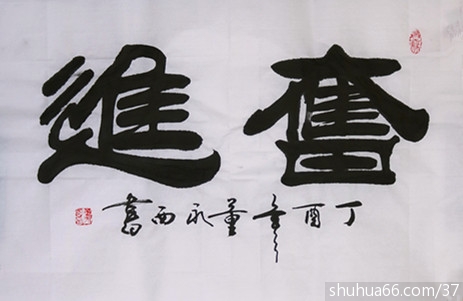 奮進
丁酉年董永西書
shuhua66.com/37